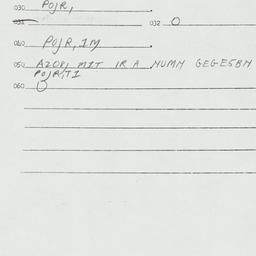 030 POJR,
031 032 0
040 POJR, IM
050 AZOPI MIT IR A NUMM GEGESBN
POJR, TI
060 0